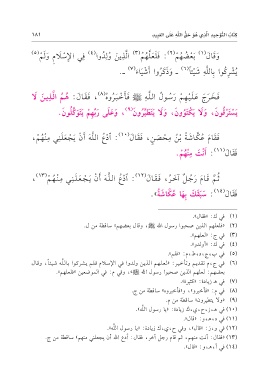 كتاب التوحيد الذي هو حق الله على العبيد ١٨١
وَقَالَ(١) بَعْضُهُمْ(٢): فَلَعَلَّهُمُ(٣) الَّذِينَ وُلِدُوا(٤) فِي الإِسْلَامِ وَلَمْ(٥)
يُشْرِكُوا بِاللَّهِ شَيْئاً(٦) ـ وَذَكَرُوا أَشْيَاءَ(٧) ـ.
فَخَرَجَ عَلَيْهِمْ رَسُولُ اللَّهِ ﷺ فَأَخْبَرُوهُ(٨)، فَقَالَ: هُمُ الَّذِينَ لَا
يَسْتَرْقُونَ، وَلَا يَكْتَوُونَ، وَلَا يَتَطَيَّرُونَ(٩)، وَعَلَى رَبِّهِمْ يَتَوَكَّلُونَ.
فَقَامَ عُكَّاشَةُ بْنُ مِحْصَنٍ، فَقَالَ(١٠): ادْعُ اللَّهَ أَنْ يَجْعَلَنِي مِنْهُمْ،
فَقَالَ(١١): أَنْتَ مِنْهُمْ.
ثُمَّ قَامَ رَجُلٌ آخَرُ، فَقَالَ(١٢): ادْعُ اللَّهَ أَنْ يَجْعَلَنِي مِنْهُمْ(١٣)،
فَقَالَ(١٤): سَبَقَكَ بِهَا عُكَّاشَةُ».
(١) في ك: «فقال».
(٢) «فلعلهم الذين صحبوا رسول الله ﷺ، وقال بعضهم» ساقطة من ل.
(٣) في ج: «لعلهم».
(٤) في ك: «أولدوا».
(٦) في ج، م تقديم وتأخير: «لعلهم الذين ولدوا في الإسلام فلم يشركوا بالله شيئاً، وقال
بعضهم: لعلهم الذين صحبوا رسول الله ﷺ»، وفي م: في الموضعين «فلعلهم».
(٨) في م: «فأخبروا»، و«فأخبروه» ساقطة من ج.
(٩) «ولا يتطيرون» ساقطة من م.
(١٣) «فقال: أنت منهم، ثم قام رجل آخر، فقال: ادع الله أن يجعلني منهم» ساقطة من ج.